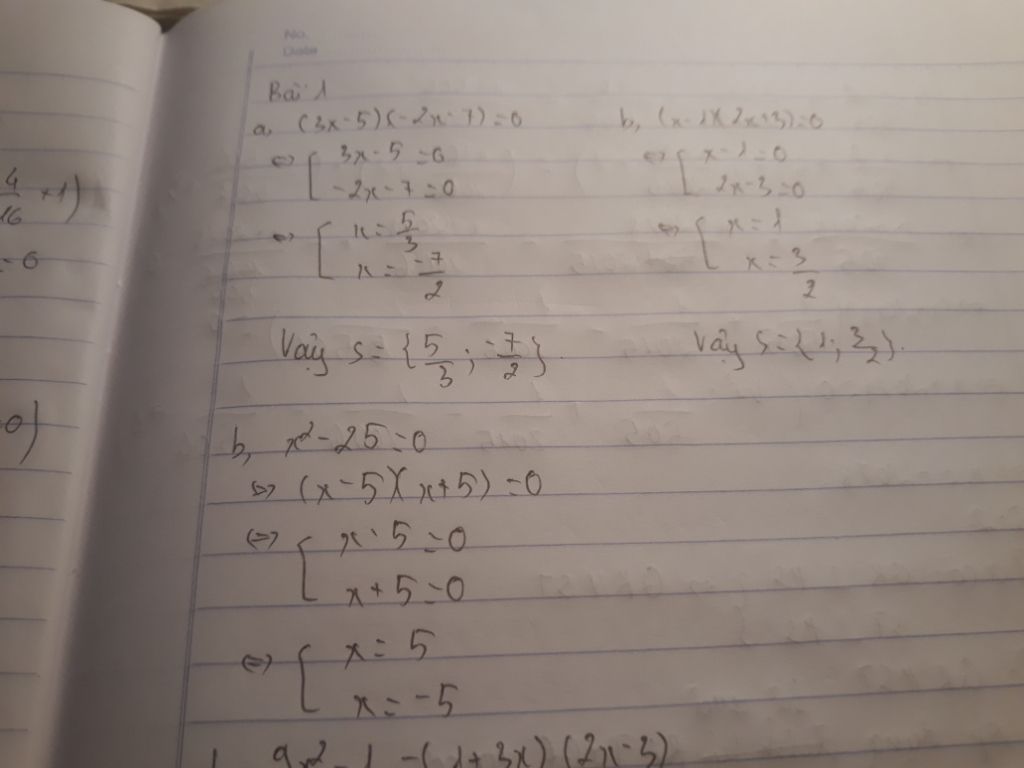 No.
Date
Bài 1
a, (3x-5)(-2x-7)=0
⇔ [ 3x-5=0
-2x-7=0
⇔ [ x=5/3
x=-7/2
Vậy S={5/3; -7/2}.
b, (x-1)(2x+3)=0
⇔ [ x-1=0
2x-3=0
⇔ [ x=1
x=3/2
Vậy S={1; 3/2}.
b, x²-25=0
⇔ (x-5)(x+5)=0
⇔ [ x-5=0
x+5=0
⇔ [ x=5
x=-5
9x²-1=(1+3x)(2x-3)
4/16 x1)
=0
=0)